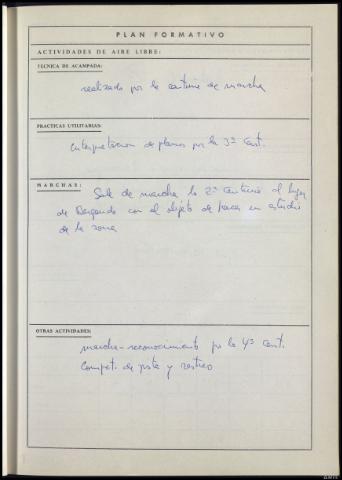 PLAN FORMATIVO
ACTIVIDADES DE AIRE LIBRE:
TECNICA DE ACAMPADA:
realizado por la centuria de marcha
PRACTICAS UTILITARIAS:
Interpretación de planos por la 3ª Cent.
MARCHAS:
Sale de marcha la 2ª Centuria al lugar
de Bergondo con el objeto de hacer un estudio
de la zona
OTRAS ACTIVIDADES:
marcha-reconocimiento por la 4ª Cent.
Competi. de pista y rastreo